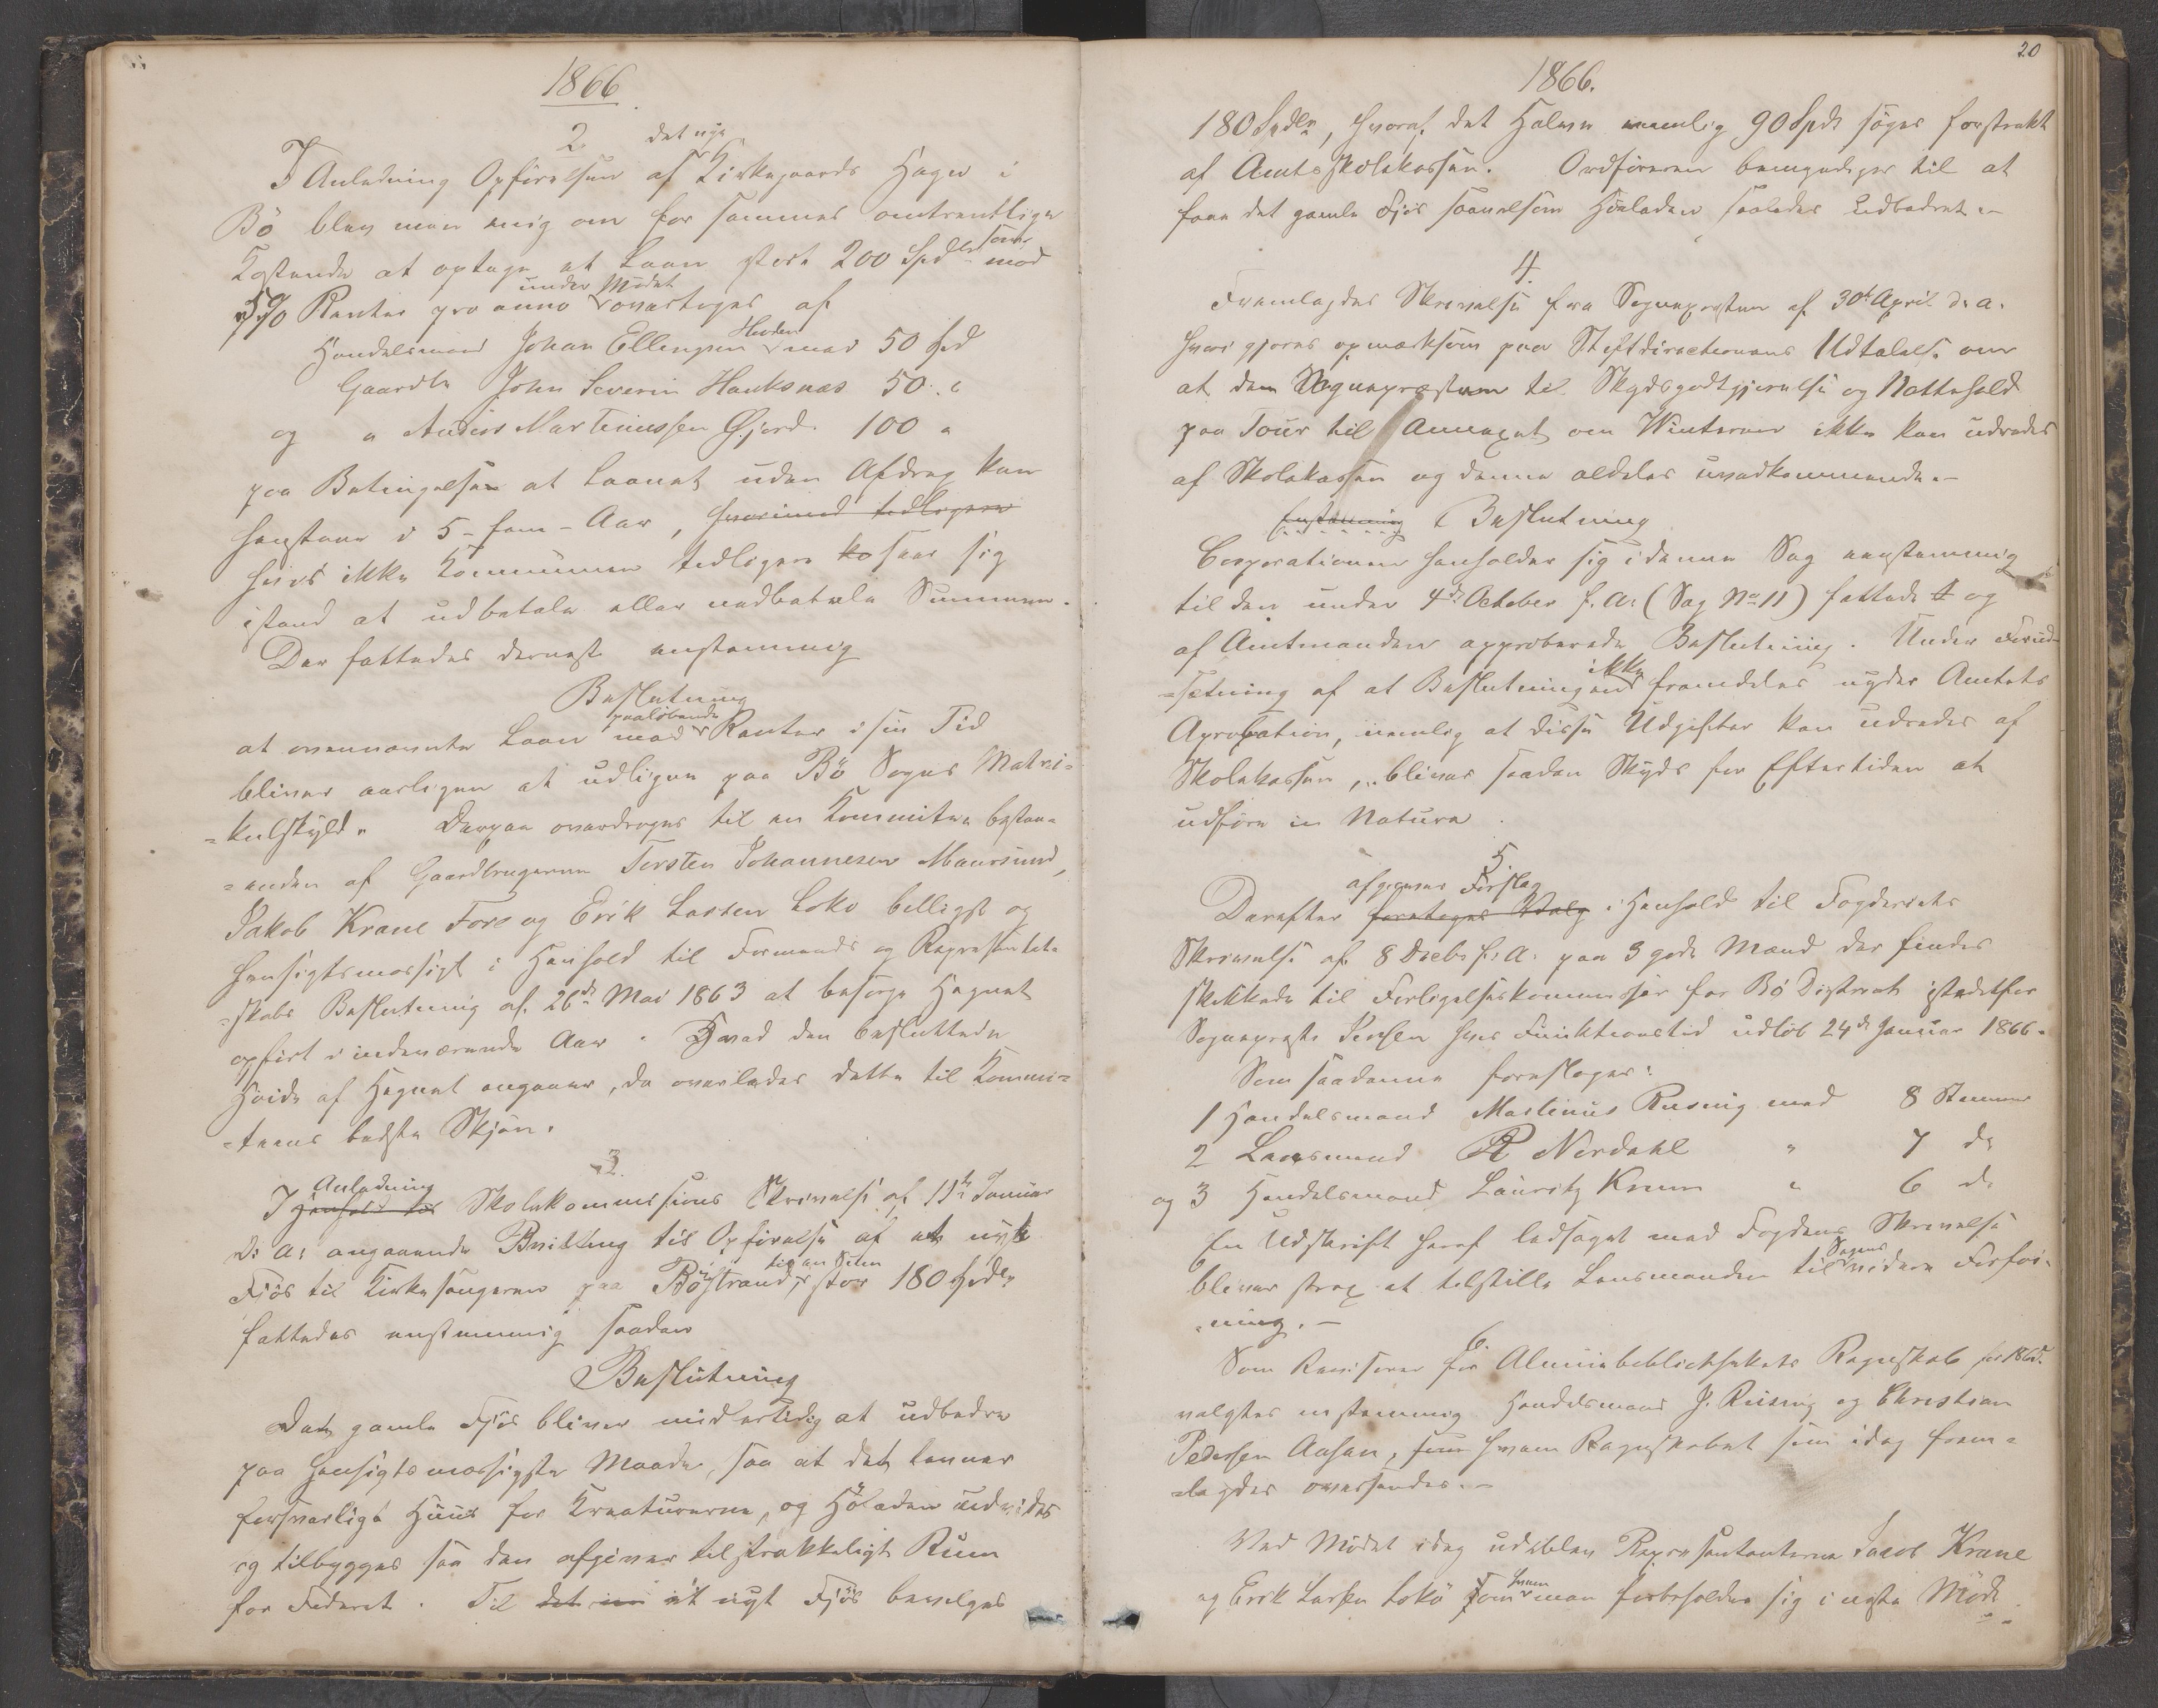 1866
2
I Anledning Opförelsen af det nye Kirkegaards Hegn i
Bö blev man enig om for sammes omtrentlige
Kostende at optage et Laan stort 200 Spdlr som mod
5% Renter pro anno under Mödet overtoges af
Handelsmand Johan Ellingsen Hovden med 50 Spd
Gaardbr John Severin Hauksnæs 50 "
og " Anders Martinussen Gjerd 100 "
paa Betingelse at Laanet uden Afdrag kan
henstaae i 5 - fem - Aar, hvorimod tidligere
hvis ikke Kommunen tidligere ko saae sig
istand at udbetale eller nedbetale Summen.
Der fattedes dernæst enstemmig
Beslutning
at ovennævnte Laan med paalöbende Renter i sin Tid
bliver aarligen at udligne paa Bö Sogns Matri-
-kulskyld. Derpaa overdroges til en Kommitee bestaa-
-ende af Gaardbrugerne Torsten Johannesen Maursund,
Jakob Krane Fore og Erik Larsen Lokö billigst og
hensigtsmæssigt i Henhold til Formands og Repræsentant-
-skabs Beslutning af 26de Mai 1863 at besörge Hegnet
opfört i indeværende Aar. Hvad den besluttede
Höide af Hegnet angaaer, da overlades dette til Kommi-
-teens bedste Skjön.
3.
I Henhold til Anledning Skolekommissions Skrivelse af 11te Januar
d: A: angaaende Bevilling til Opförelse af et nyt
Fjös til Kirkesangeren paa Böstrand, stor 180 Spdlr
fattedes enstemmig saadan
Beslutning
Det gamle Fjös bliver midlertidig at udbedre
paa hensigtsmæssigste Maade, saa at det danner
forsvarligt Huus for Kreaturerne, og Höladen udvides
og tilbygges saa den afgiver tilstrækkeligt Rum
for Foderet. Til det nu et nyt Fjös bevilges
20
1866.
180 Spdlr, hvoraf det Halve nemlig 90 Spdr söges forstrakt
af Amtsskolekassen. Ordföreren bemyndiges til at
faae det gamle Fjös saavelsom Höeladen saaledes udbedret.-
4.
Fremlagdes Skrivelse fra Sognepresten af 30te April d. a.
hvori gjöres opmærksom paa Stiftdirectionens Udtalelse om
at den Sognepræsten til Skydsgodtgjörelse og Nattehold
paa Tour til Annexet om Vinteren ikke kan udredes
af Skolekassen og denne aldeles uvedkommende.-
Enstemmig Beslutning
Corporationen henholder sig i denne Sag eenstemmig
til den under 4de October f. A: (Sag No 11) fattede t og
af Amtmanden approberede Beslutning. Under Forud-
-sætning af at Beslutningen ikke fremdeles nyder Amtets
Aprobation, nemlig at disse Udgifter kan udredes af
Skolekassen, bliver saadan Skyds for Eftertiden at
udföre in Natura.
5.
Derefter foretoges Valg afgives Forslag i Henhold til Fogderiets
Skrivelse af 8 Decbr f. A: paa 3 gode Mænd der findes
skikkede til Forligelseskommissær for Bö District istedetfor
Sognepræst Jensen hvis Funktionstid udlöb 24de Januar 1866.
Som saadanne foresloges:
1 Handelsmand Martinus Rusing med 8 Stemmer
2 Lensmand R Nordahl " 7 do
og 3 Handelsmand Lauritz Krum " 6 do
En Udskrift heraf ledsaget med Fogdens Skrivelse
bliver strax at tilstille Lensmanden til Sagens videre Forföi-
-ning.-
6.
Som Revisorer for Almuebibliothekets Regnskab for 1865
valgtes enstemmig Handelsmand J. Rusing og Christian
Pedersen Aasan, som hvem Regnskabet som idag frem-
-lagdes oversendes.-
Ved Mödet idag udeblev Repræsentanterne Jacob Krane
og Erik Larsen Lokö som hvem man forbeholder sig i neste Möde